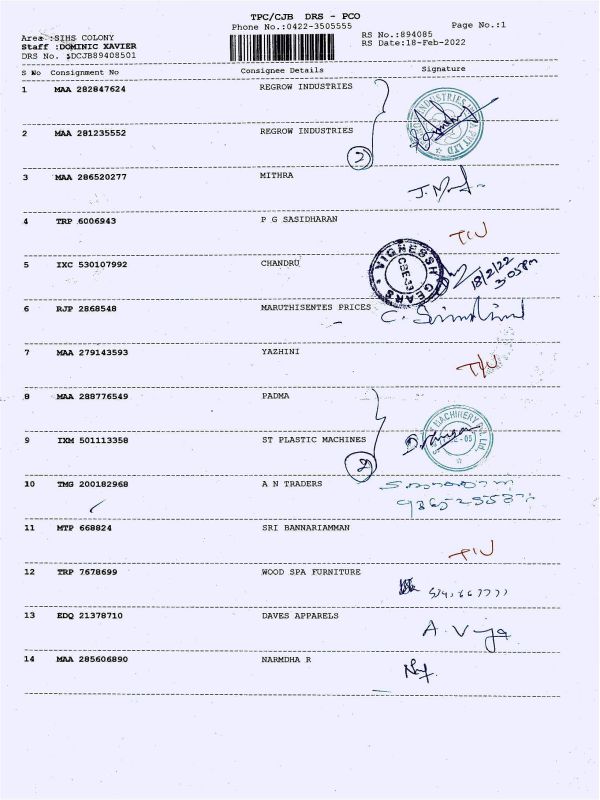 TPC/CJB DRS - PCO
Phone No.:0422-3505555
Page No.:1
Area :SIHS COLONY
Staff :DOMINIC XAVIER
DRS No. :DCJB89408501
RS No.:894085
RS Date:18-Feb-2022
S No Consignment No Consignee Details Signature
1 MAA 282847624 REGROW INDUSTRIES
2 MAA 281235552 REGROW INDUSTRIES
2
3 MAA 286520277 MITHRA
4 TRP 6006943 P G SASIDHARAN
TIU
5 IXC 530107992 CHANDRU
VIGNESSH GEARS
CBE-33
18/2/22
3.05pm
6 RJP 2868548 MARUTHISENTES PRICES
7 MAA 279143593 YAZHINI
TIU
8 MAA 288776549 PADMA
9 IXM 501113358 ST PLASTIC MACHINES
2
MACHINERY
10 TMG 200182968 A N TRADERS
11 MTP 668824 SRI BANNARIAMMAN
TIU
12 TRP 7678699 WOOD SPA FURNITURE
13 EDQ 21378710 DAVES APPARELS
14 MAA 285606890 NARMDHA R